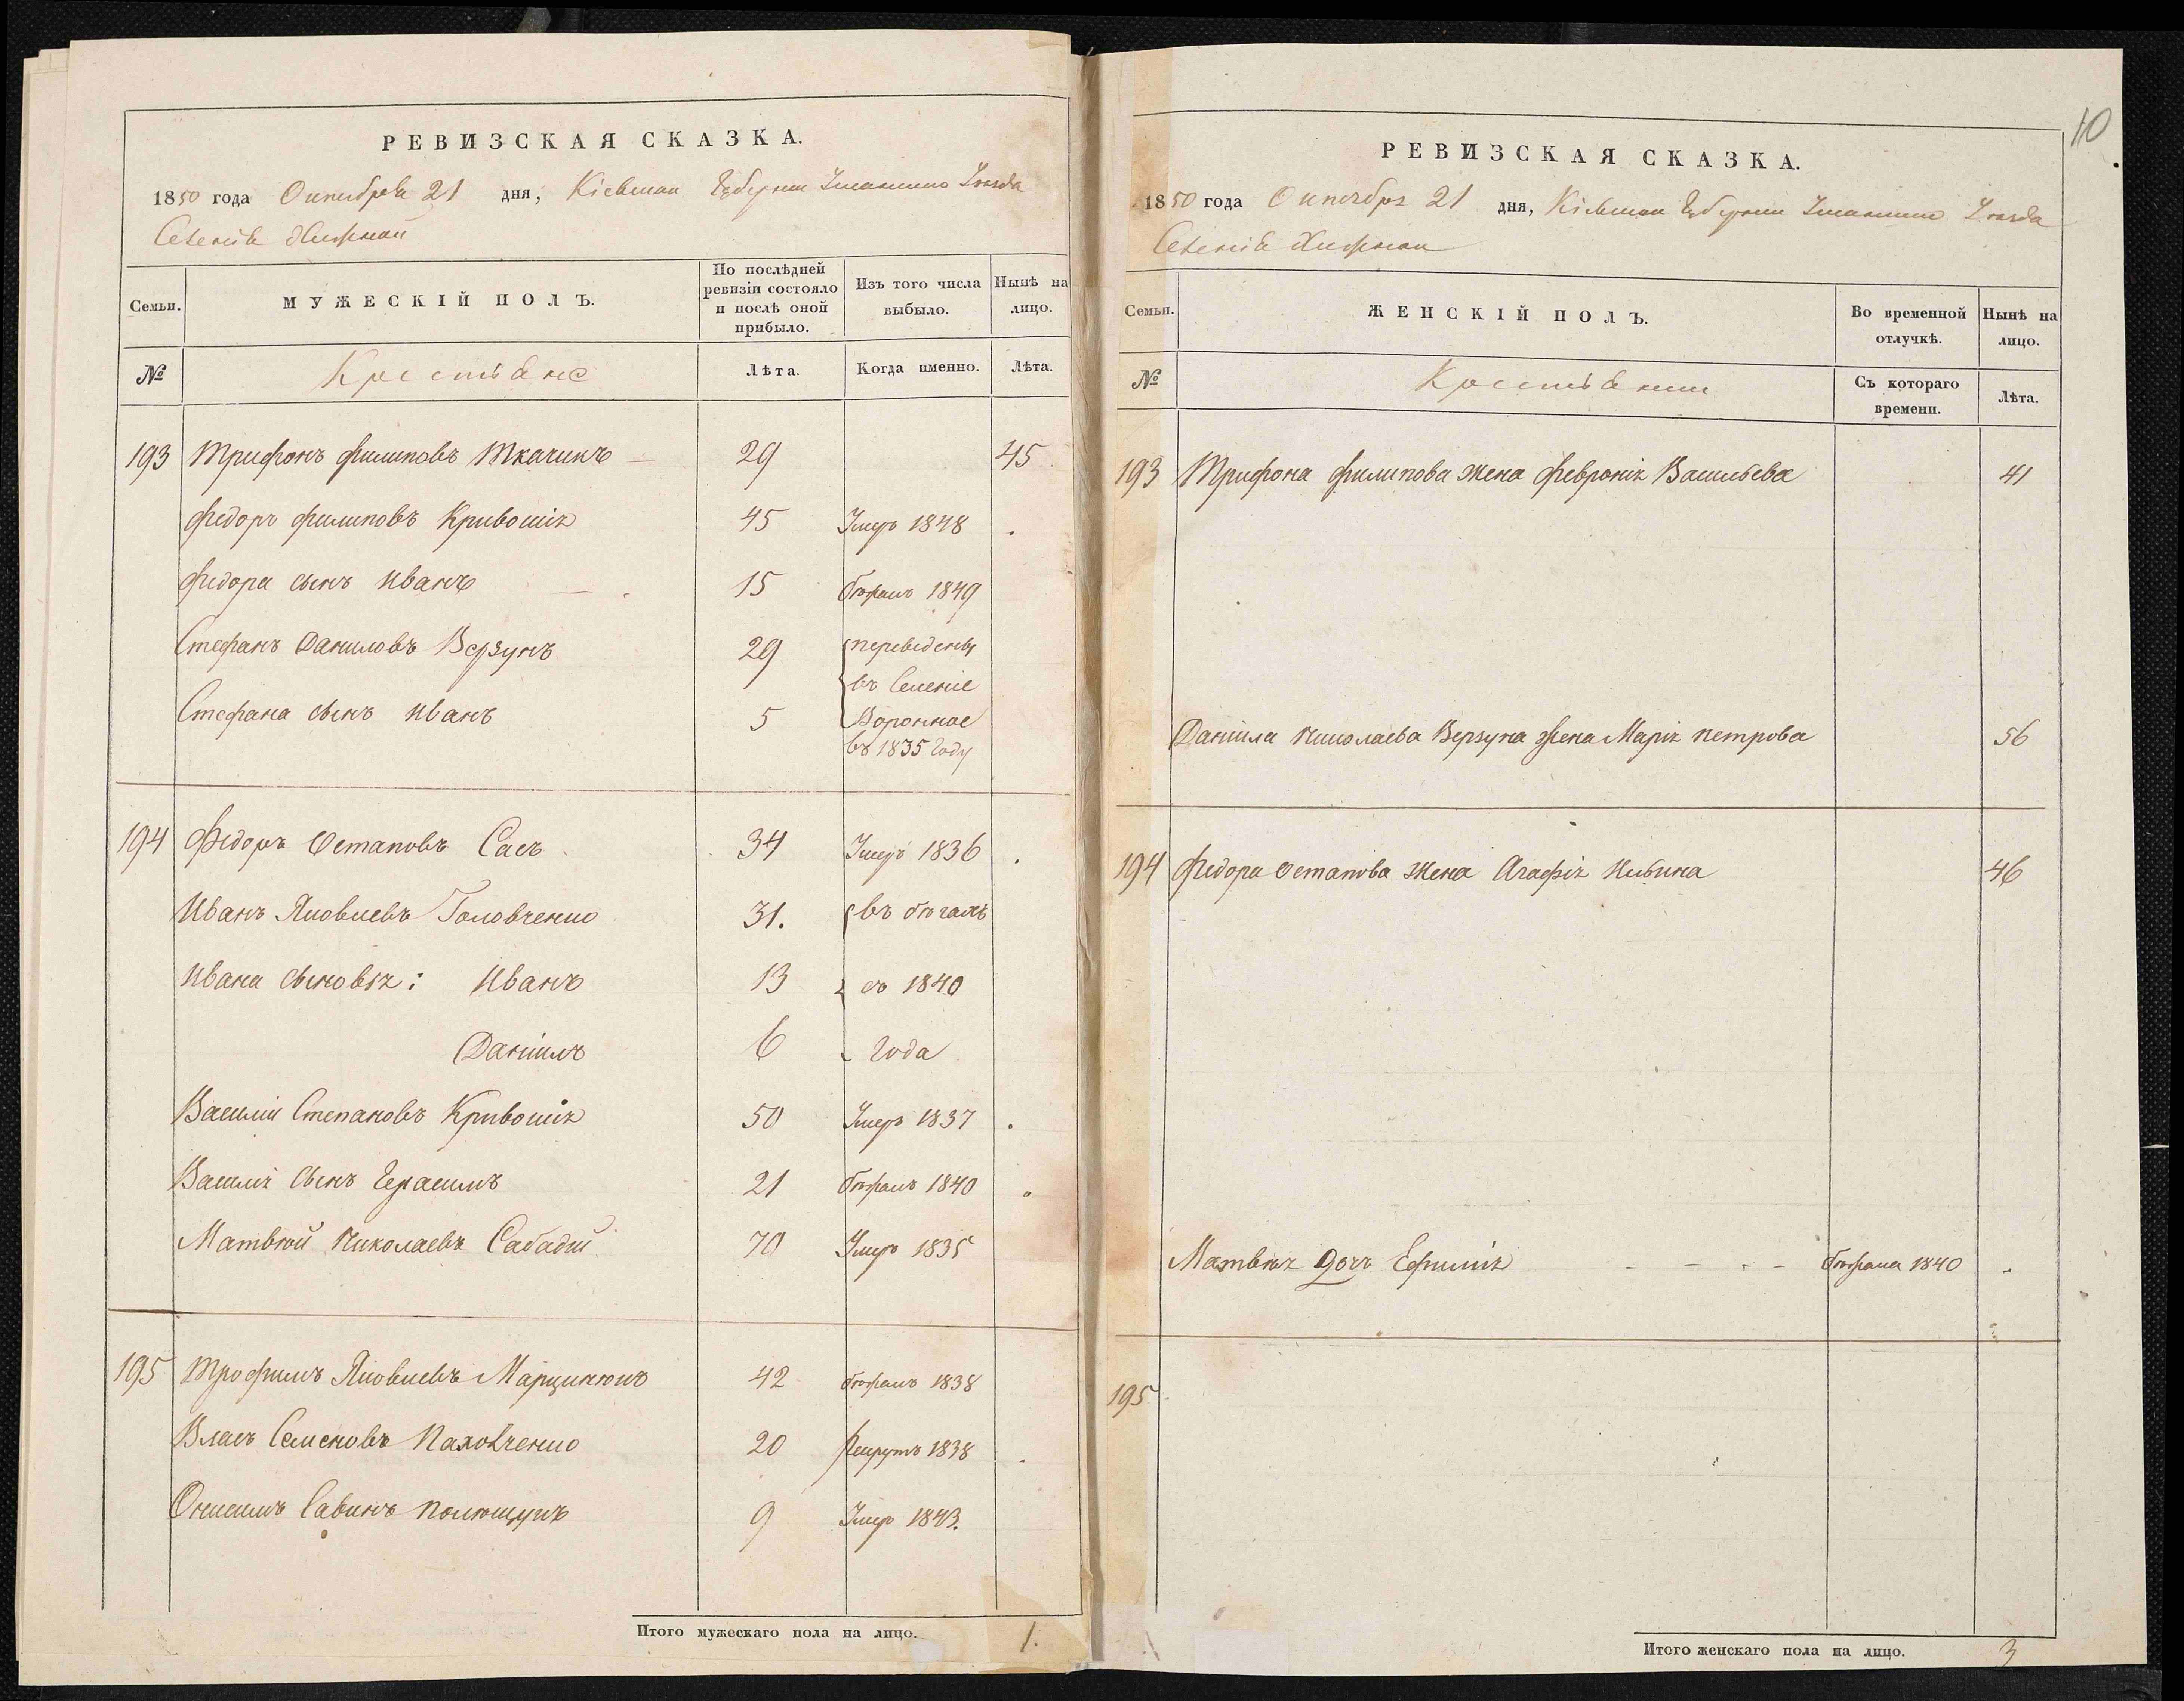 РЕВИЗСКАЯ СКАЗКА.
1850 года Октября 21 дня, Кіевской Губерніи Уманского Уѣзда
Селенія
МУЖЕСКІЙ ПОЛЪ.
Семьи.
По послѣдней ревизіи состояло и послѣ оной прибыло.
Изъ того числа выбыло.
Нынѣ на лицо.
№
Крестьяне
Лѣта.
Когда именно.
Лѣта.
193 Трифонъ Филиповъ Ткачикъ 29 45
Федоръ Филиповъ Кривошія 45 Умеръ 1848
Федора сынъ Иванъ 15 1849
Стефанъ Даниловъ Верзунъ 29 переведены
въ Селеніе
Стефана сынъ Иванъ 5 Воронное
въ 1835 году
194 Федоръ Остаповъ Саєъ 34 Умеръ 1836
Иванъ Яковлевъ Головченко 31. въ бѣгахъ
Ивана сыновья: Иванъ 13 съ 1840
Даніилъ 6 года
Василій Степановъ Кривошія 50 Умеръ 1837
Василія сынъ Герасимъ 21 1840
Матвѣй Николаевъ Сабадій 70 Умеръ 1835
195 Трофимъ Яковлевъ Марцинюкъ 42 1838
Власъ Семеновъ 20 Рекрутъ 1838
Онисимъ Савинъ Полющукъ 9 Умеръ 1843.
Итого мужескаго пола на лицо. 1.
10
РЕВИЗСКАЯ СКАЗКА.
1850 года Октября 21 дня, Кіевской Губерніи Уманского Уѣзда
Селенія
Семьи.
ЖЕНСКІЙ ПОЛЪ.
Во временной отлучкѣ.
Нынѣ на лицо.
№
Крестьянки
Съ котораго времени.
Лѣта.
193 Трифона Филипова жена Февронія Васильева 41
Даніила Николаева Верзуна жена Марія Петрова 56
194 Федора Остапова жена Агафія Ильина 46
Матвѣя дочь Ефимія 1840
195
Итого женскаго пола на лицо. 3